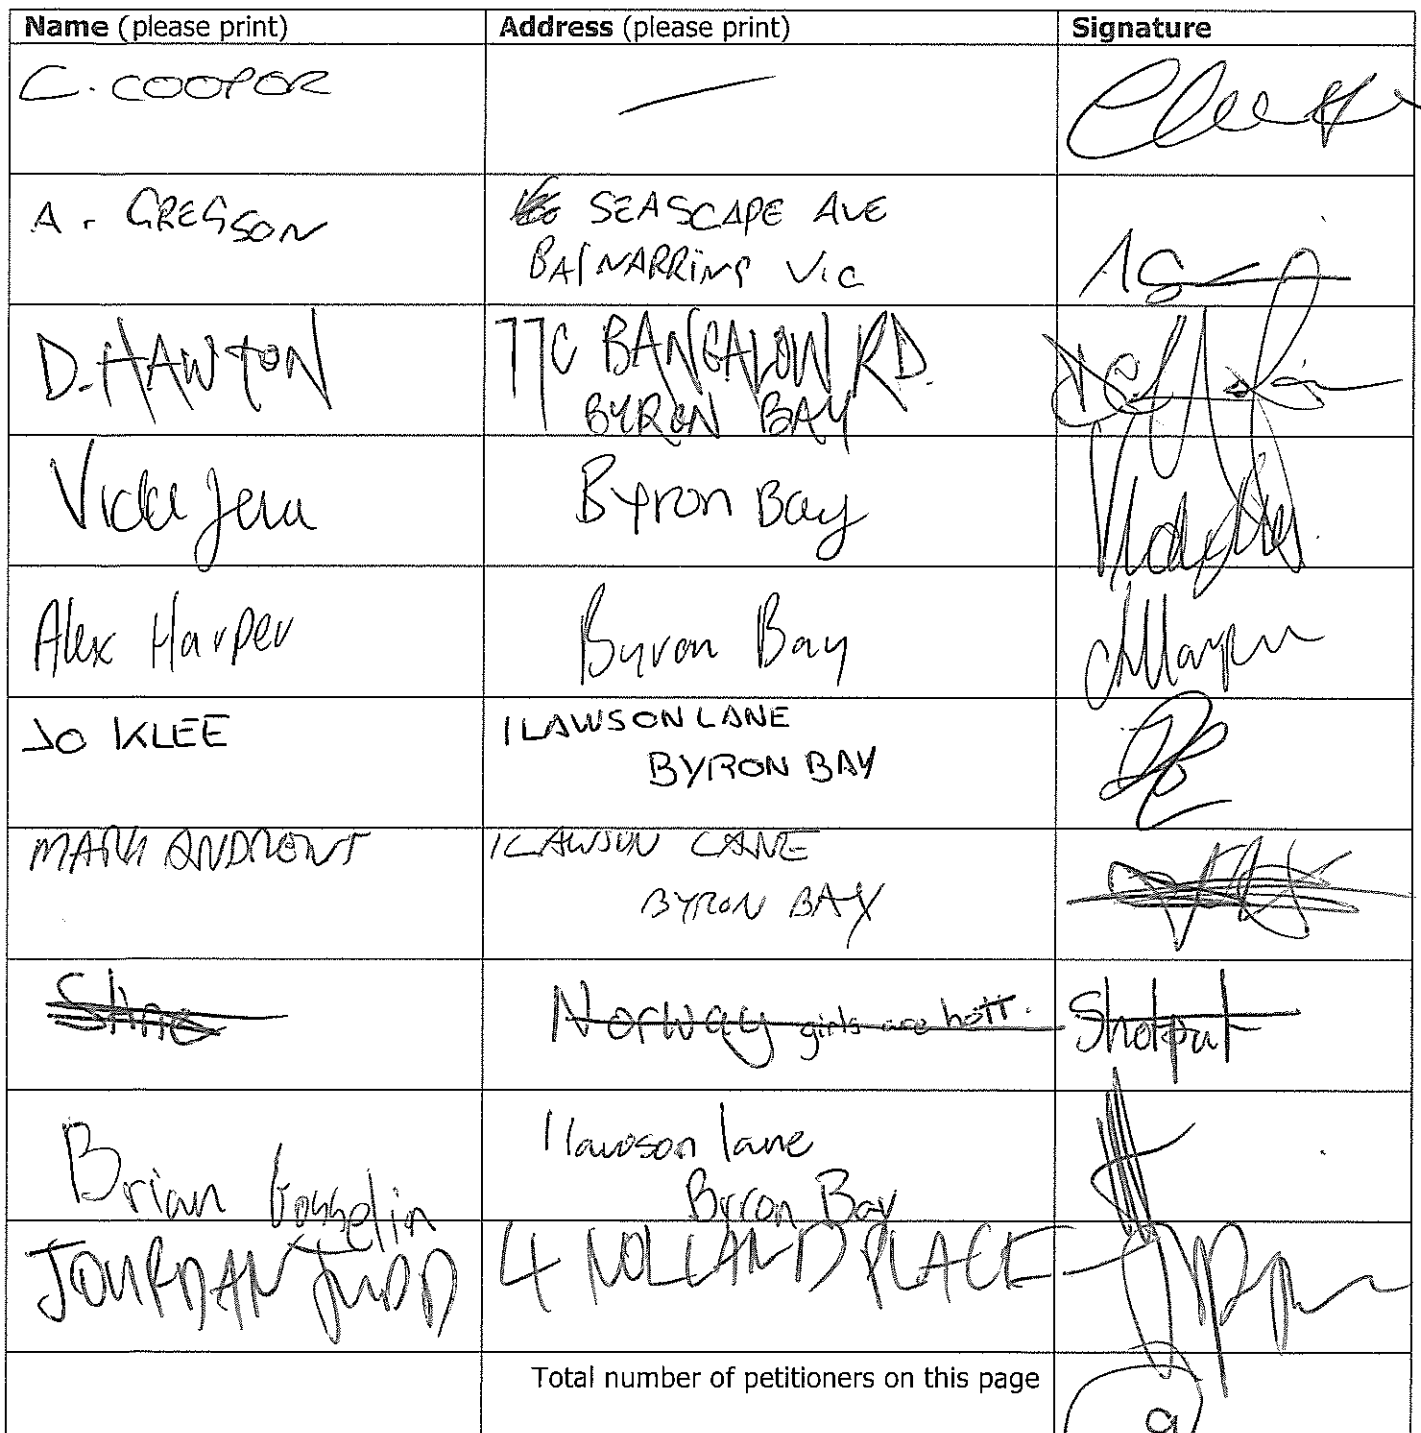 Name (please print) Address (please print) Signature
C. COOPER —
A. GREGSON SEASCAPE AVE
BALNARRING VIC
D. HAWTON 77C BANGALOW RD.
BYRON BAY
Vicki Byron Bay
Alex Harper Byron Bay
JO KLEE 1 LAWSON LANE
BYRON BAY
MARK ANDREWS 1 LAWSON LANE
BYRON BAY
Norway girls are hott. Shotput
Brian Gosselin 1 lawson lane
Byron Bay
JOURDAN JUDD 4 NOLLAND PLACE
Total number of petitioners on this page 9